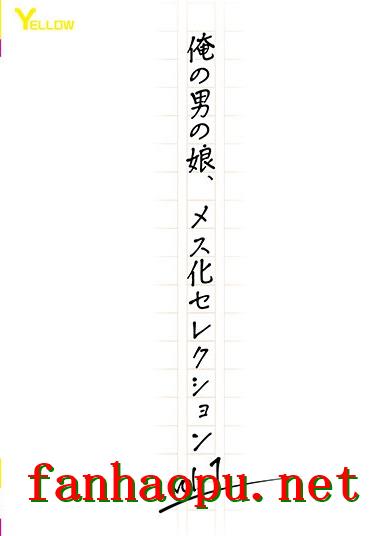 YELLOW
俺の男の娘、メス化セレクション
fanhaopu.net